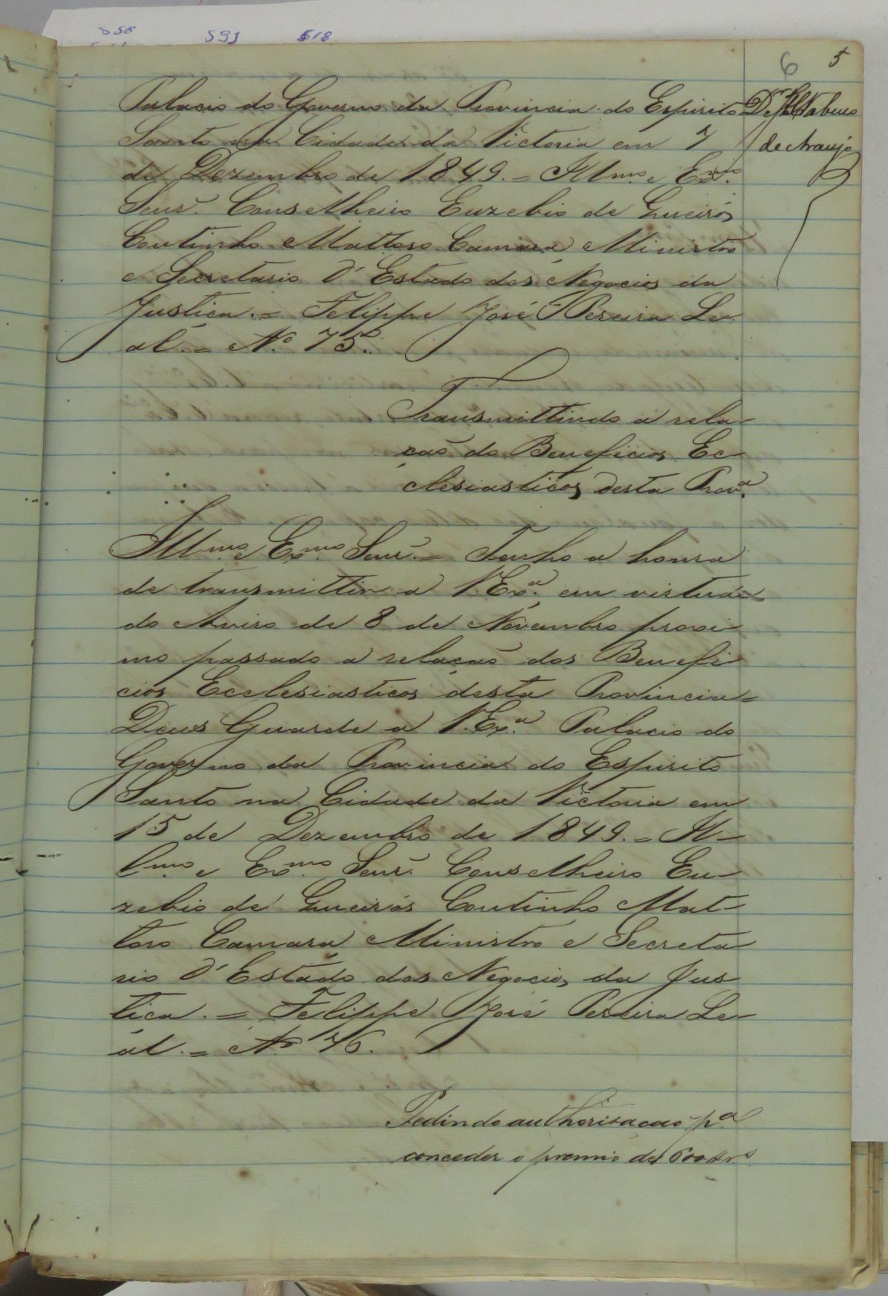 556 591 618
6 5
Palacio do Governo da Provincia do Espirito
Dr. Nabuco
Santo na Cidade da Victoria em 7
de Araujo
de Dezembro de 1849. = Illmo. e Exmo.
Senr. Conselheiro Euzebio de Queirós
Coutinho Mattoso Camara Ministro
e Secretario d'Estado dos Negocios da
Justiça. = Felippe José Pereira Le-
al. = No. 75.
Transmittindo a rela-
ção do Beneficios Ec-
clesiasticos desta Prova.
Illmo. e Exmo. Senr. = Tenho a honra
de transmittir a V. Exa. em virtude
do Aviso de 8 de Novembro proxi-
mo passado a relação dos Benefi-
cios Ecclesiasticos desta Provincia =
Deus Guarde a V. Exa. Palacio do
Governo da Provincia do Espirito
Santo na Cidade da Victoria em
15 de Dezembro de 1849. = Il-
lmo. e Exmo. Senr. Conselheiro Eu-
zebio de Queirós Coutinho Mat-
toso Camara Ministro e Secreta-
rio d'Estado dos Negocios da Jus-
tiça. = Felippe José Pereira Le-
al. = No. 76.
Pedindo authorisação pa.
conceder o premio de